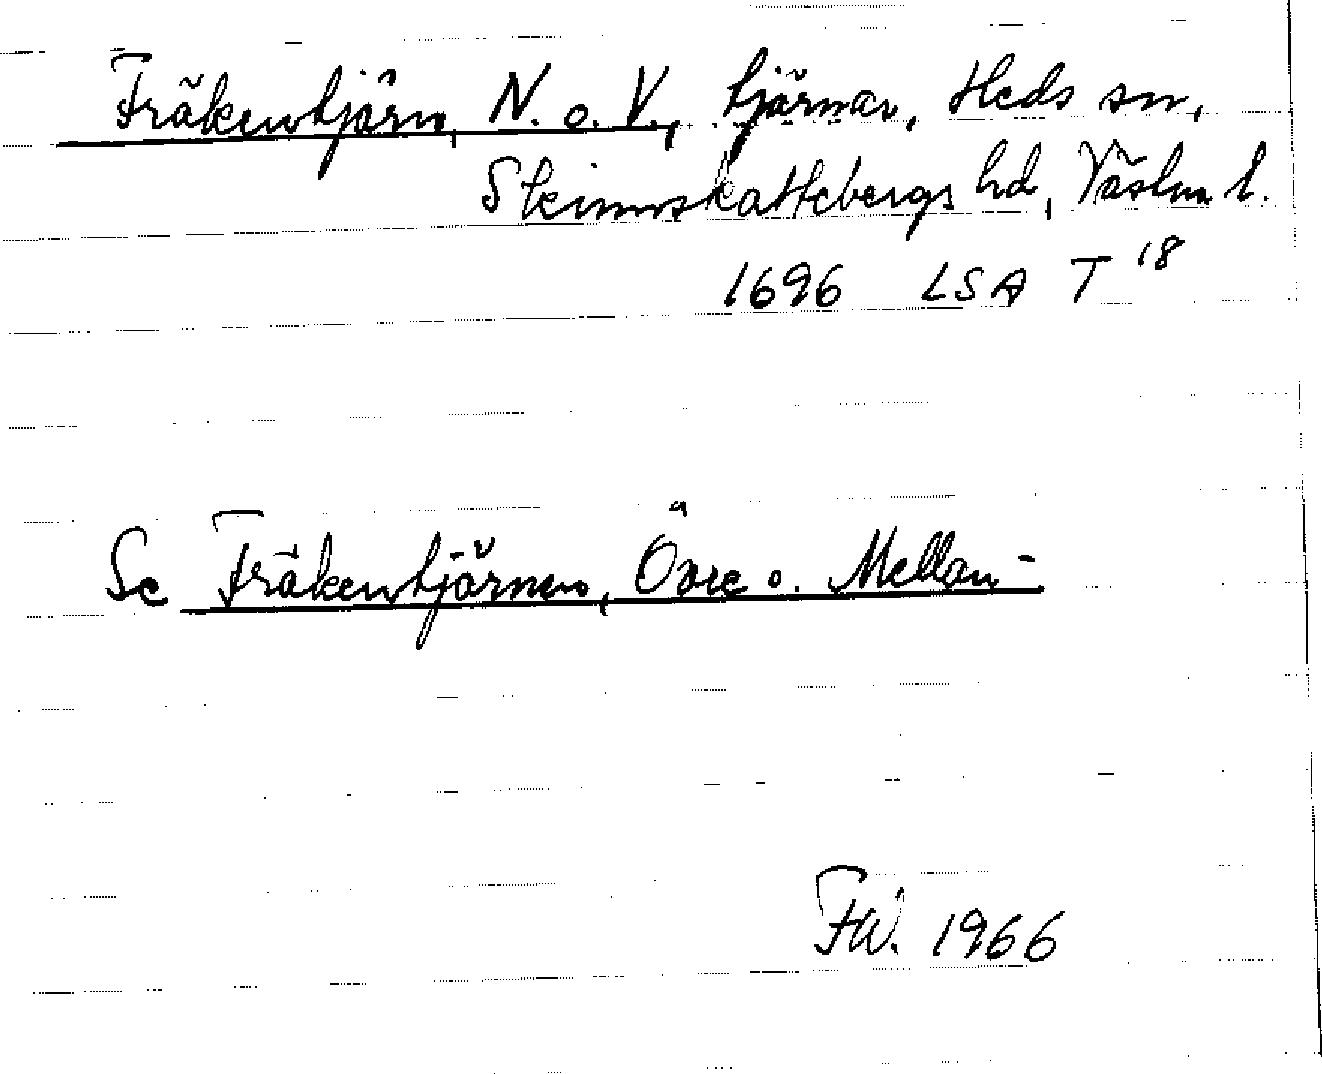 Fräkentjärn, N. o. V., tjärnar, Heds sn,
Skinnskattebergs hd, Västm. l.
1696 LSA T 18
Se Fräkentjärnen, Övre o. Mellan-
FW. 1966